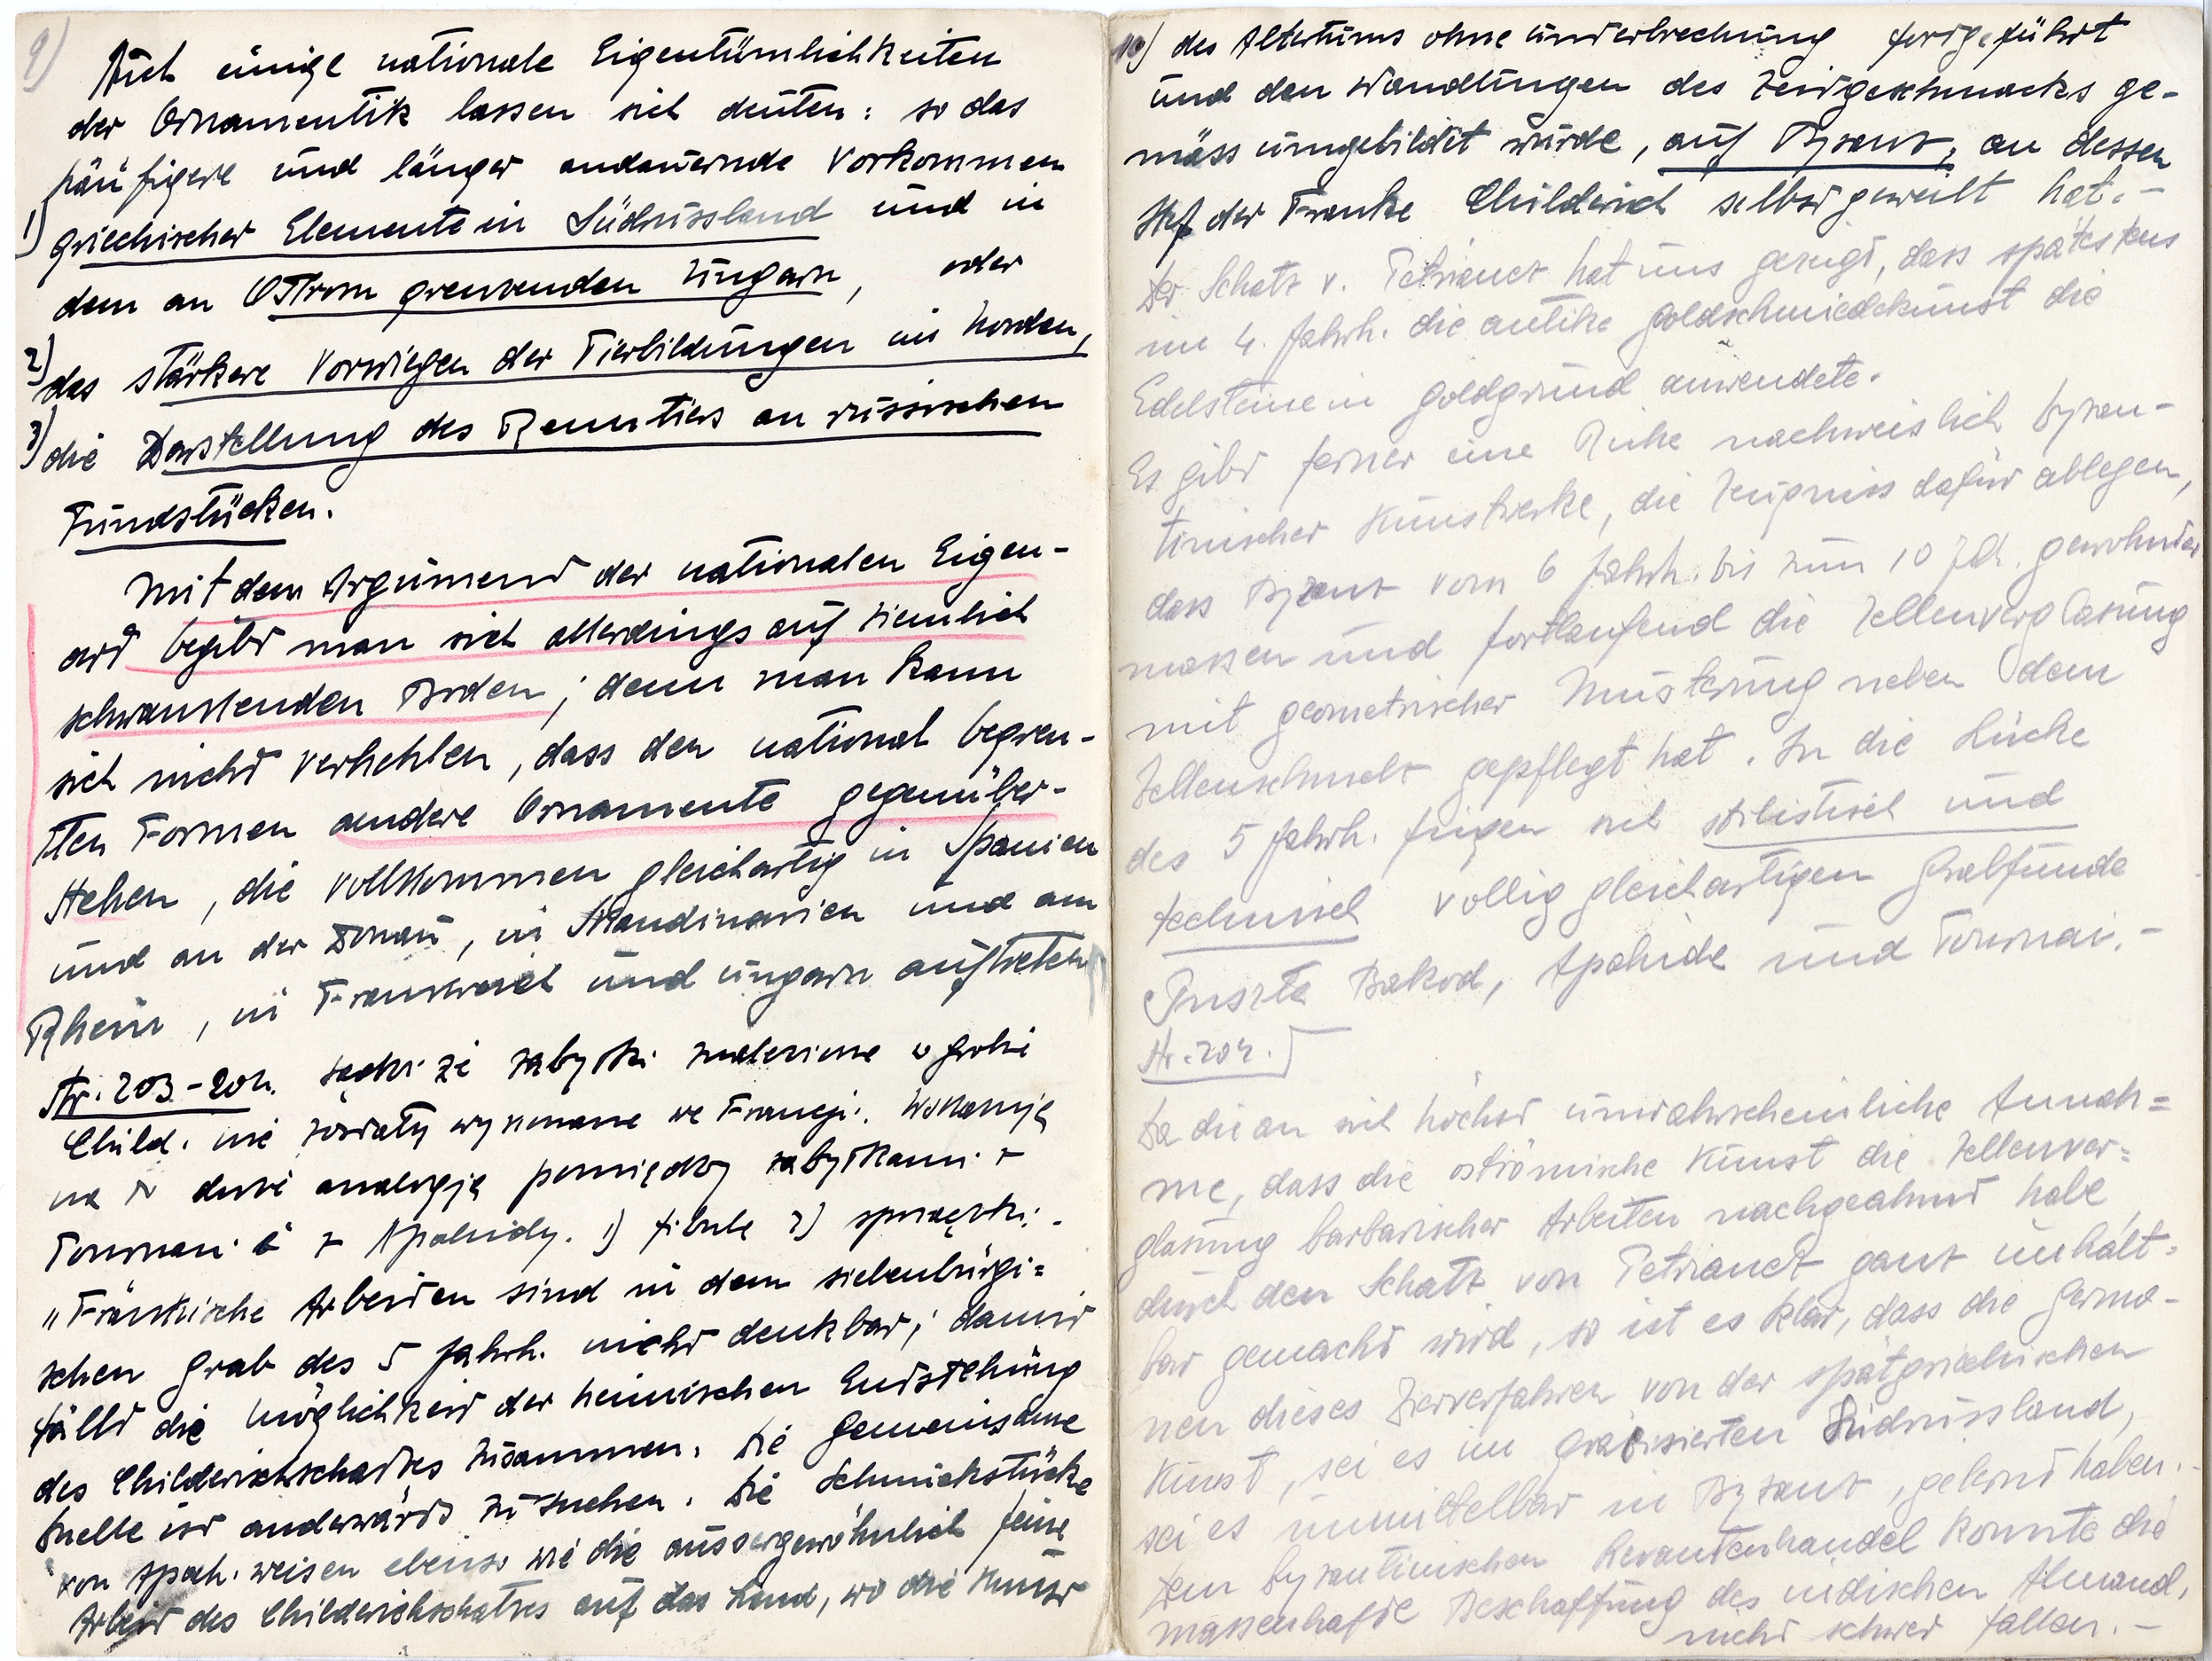 9)
Auch einige nationale Eigentümlichkeiten
der Ornamentik lassen sich deuten: so das
häufigere und länger andauernde Vorkommen
1) griechischer Elemente in Südrussland und in
dem an Ostrom grenzenden Ungarn, oder
2) das stärkere Vorwiegen der Tierbildungen im Norden,
3) die Darstellung des Renntiers an russischen
Fundstücken.
Mit dem Argument der nationalen Eigen-
art begibt man sich allerdings auf ziemlich
schwankenden Boden; denn man kann
sich nicht verhehlen, dass den national begren-
zten Formen andere Ornamente gegenüber-
stehen, die vollkommen gleichartig in Spanien
und an der Donau, in Skandinavien und am
Rhein, in Frankreich und Ungarn auftreten
Str. 203-204. sądzi że zabytki znalezione w grobie
Child. nie zostały wykonane we Francji. Wskazuje
na duże analogje pomiędzy zabytkami z
Tournai a z Apahidy. 1) fibule 2) sprzączki.-
"Fränkische Arbeiten sind in dem siebenbürgi=
schen Grab des 5 Jahrh. nicht denkbar; damit
fällt die Möglichkeit der heimischen Entstehung
des Childerichschatzes zusammen. Die gemeinsame
Quelle ist anderwärts zu suchen. Die Schmuckstücke
von Apah. weisen ebenso wie die aussergewöhnlich feine
Arbeit des Childerichschatzes auf das Land, wo die Kunst
10) des Altertums ohne Unterbrechung fortgeführt
und den Wandlungen des Zeitgeschmacks ge-
mäss umgebildet wurde, auf Byzanz, an dessen
Hof der Franke Childerich selbst geweilt hat.-
Der Schatz v. Petrianez hat uns gezeigt, dass spätestens
im 4. Jahrh. die antike Goldschmiedekunst die
Edelsteine in Goldgrund anwendete.
Es gibt ferner eine Reihe nachweislich byzan-
tinischer Kunstwerke, die Zeugniss dafür ablegen,
dass Byzanz vom 6 Jahrh. bis zum 10 Jh. gewohnter
massen und fortlaufend die Zellenverglasung
mit geometrischer Musterung neben dem
Zellenschmelz gepflegt hat. In die Lücke
des 5 Jahrh. fügen sich stilistisch und
technisch völlig gleichartigen Grabfunde
Puszta Bakod, Apahida und Tournai.-
Str. 204.
Da die an sich höchst unwahrscheinliche Annah=
me, dass die oströmische Kunst die Zellenver=
glasung barbarischer Arbeiten nachgeahmt habe,
durch den Schatz von Petrianez ganz unhalt=
bar gemacht wird, so ist es klar, dass die Germa-
nen dieses Zierverfahren von der spätgriechischen
Kunst, sei es im gräcisierten Südrussland,
sei es unmittelbar in Byzanz, gelernt haben.-
Dem byzantinischen Levantenhandel konnte die
massenhafte Beschaffung des indischen Almand.
nicht schwer fallen.-